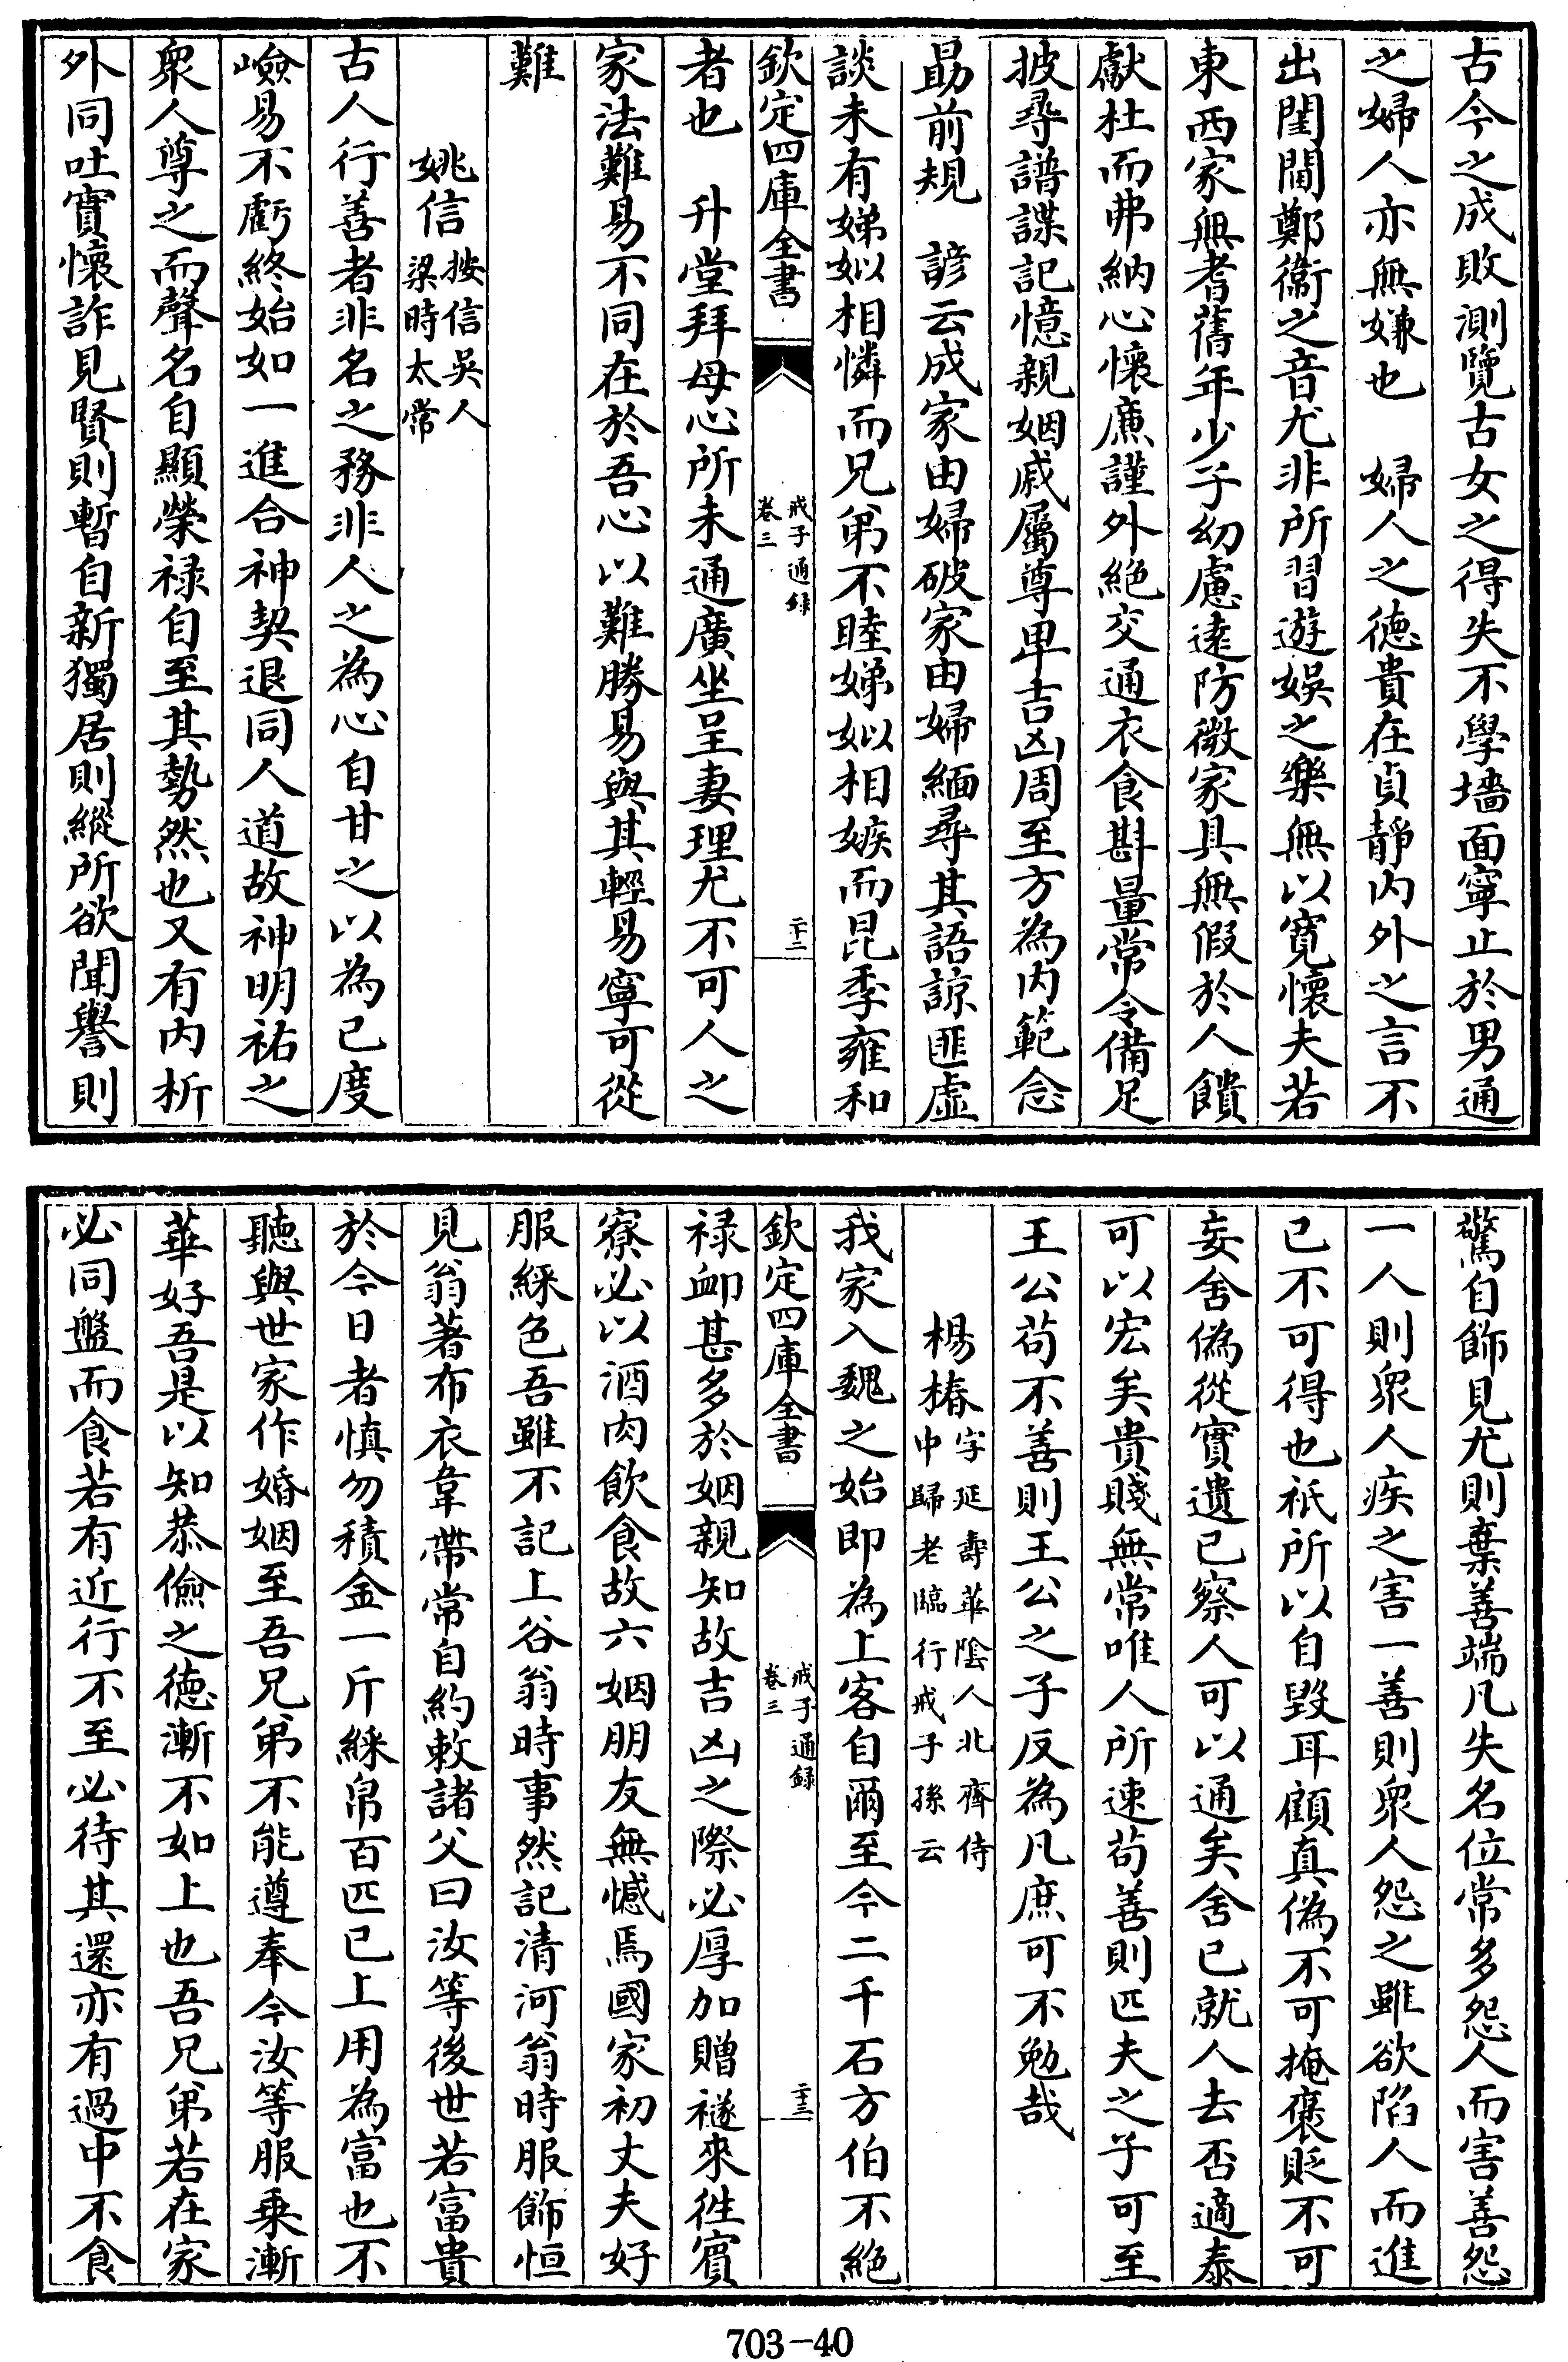 古今之成敗測覽古女之得失不學墻面寧止於男通
之婦人亦無嫌也　婦人之德貴在貞靜内外之言不
出閨閫鄭衞之音尤非所習遊娛之樂無以寛懷夫若
東西家無耆舊年少子幼慮逺防微家具無假於人饋
獻杜而弗納心懷廉謹外絶交通衣食斟量常令備足
披尋譜諜記憶親姻戚屬尊卑吉凶周至方為内範念
勗前規　諺云成家由婦破家由婦緬尋其語諒匪虛
談未有娣姒相憐而兄弟不睦娣姒相嫉而昆季雍和
欽定四庫全書
戒子通録
卷三
二十二
者也　升堂拜母心所未通廣坐呈妻理尤不可人之
家法難易不同在於吾心以難勝易與其輕易寧可從
難
姚信按信吳人
梁時太常
古人行善者非名之務非人之為心自甘之以為已度
嶮易不虧終始如一進合神契退同人道故神明祐之
衆人尊之而聲名自顯榮禄自至其勢然也又有内析
外同吐實懷詐見賢則暫自新獨居則縱所欲聞譽則
驚自飾見尤則棄善端凡失名位常多怨人而害善怨
一人則衆人疾之害一善則衆人怨之雖欲陷人而進
已不可得也祇所以自毁耳顧真偽不可掩褒貶不可
妄舍偽從實遺已察人可以通矣舍已就人去否適泰
可以宏矣貴賤無常唯人所速茍善則匹夫之子可至
王公茍不善則王公之子反為凡庶可不勉哉
楊椿字延壽華陰人北齊侍
中歸老臨行戒子孫云
我家入魏之始即為上客自爾至今二千石方伯不絶
欽定四庫全書
戒子通録
卷三
二十三
禄䘏甚多於姻親知故吉凶之際必厚加贈襚來徃賓
寮必以酒肉飲食故六姻朋友無憾焉國家初丈夫好
服綵色吾雖不記上谷翁時事然記清河翁時服飾恒
見翁著布衣韋帶常自約敕諸父曰汝等後世若富貴
於今日者慎勿積金一斤綵帛百匹已上用為富也不
聽與世家作婚姻至吾兄弟不能遵奉今汝等服乗漸
華好吾是以知恭儉之德漸不如上也吾兄弟若在家
必同盤而食若有近行不至必待其還亦有過中不食
703-40